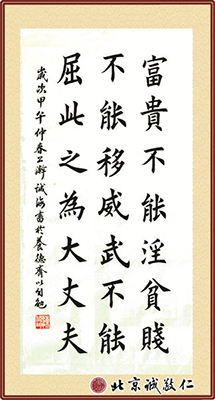 富貴不能淫貧賤
不能移威武不能
屈此之為大丈夫
歲次甲午仲春上澣誠海書於養德齋以自勉
北京誠敬仁